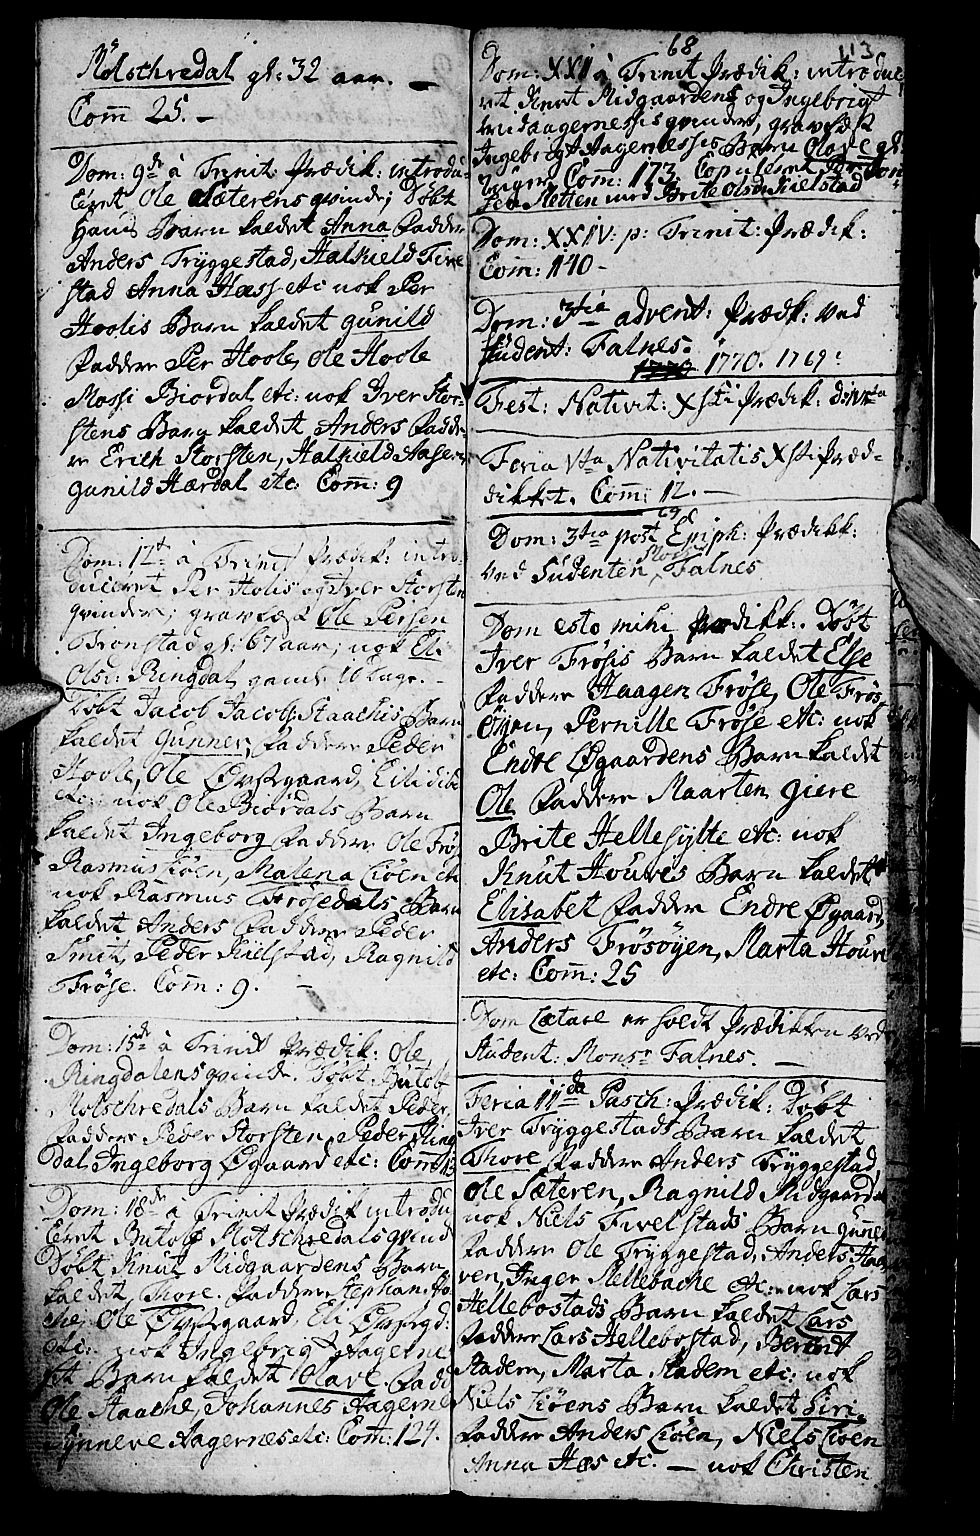 Molschredal gl: 32 aar. —
Com̄ 25. –
Dom: 9de à Trinit: Prædik: introdu-
ceret Ole Sæterens qvinde; Døbt
Hans Barn kaldet Anna Fadder
Anders Tryggestad, Halkield Five
stad Anna Hæss etc nok Per
Hoolis Barn kaldet Gunild
Faddere Per Hoole, Ole Hoole
Mossi Biordal etc: nok Iver Stor-
stens Barn kaldet Anders Fadde-
re Erich Storsten, Halkield
Gunild Hærdal etc: Com̄: 9
Dom: 12te à Trinit Prædik: intro
duceret Per Holis og Iver Storsten
qvinder; gravfæst Ole Persen
Tronstad gl: 67 aar; nok Eli
Olsd: Ringdal gaml: 16 dage. –
Døbt Jacob Jacobs: Staachis Barn
kaldet Gunner, Faddere Peder
Hoole, Ole Øvregaard,
etc: nok Ole Biordals Barn
kaldet Ingeborg Faddere Ole Frøs
Rasmus Kiøen, Malena Kiøen etc
nok Rasmus Frøsedals Barn
kaldet Anders Faddere Peder
Smit, Peder Kielstad, Ragnild
Frøse. Com̄: 9. –
Dom: 15de à Trinit Prædik: Ole
Ringdalens qvinde. Døbt Butolf
Molschredals Barn kaldet Peder,
Faddere Peder Storsten, Peder Ring
dal, Ingeborg Øgaard etc: Com̄:
Dom: 18de à Trinit Prædik introdu
ceret Butolf Molschredals qvind
Døbt Knut Midgaardens Barn
kaldet Thore. Faddere Stephan
Ole Øvregaard, Eli Øvregd:
etc: nok Ingebrigt Aagerne
sit Barn kaldet Olave. Fadd
Ole Staache, Johannes Aagerne
Synneve Aagernes etc: Com: 124.
68
113
Dom: XXII à Trinit Prædik: introdu
ret Knut Midgaardens og Ingebrigt
Aagernessis qvinder, gravfæst
Ingebrigt Aagernessis Barn Olave gl:
uger Com: 173. Copuleret
sen Sletten med Brite Olsd: Kielstad
Dom: XXIV: p: Trinit: Prædik:
Com: 140 –
Dom: 3tia advent: Prædk: ved
Student: Falnes.
1770. 1769:
Fest: Nativit: Xsti Prædik:
Feria Vta Nativitatis Xsti Præd-
dikket. Com̄: 12. –
Dom: 3tia post Epiph: Prædikk:
ved Sudenten Falnes
Dom esto mihi Prædikk:. Døbt
Iver Frøsis Barn kaldet Else
Faddere Haagen Frøse, Ole Frøs
øyen, Pernille Frøse etc: nok
Endre Øgaardens Barn kaldet
Ole Faddere Maarten Giere
Brite Hellesylte etc: nok
Knut Houves Barn kaldet
Elisabet Fadder Endre Øgaard,
Anders Frøsøyen, Marta Houv
etc: Com̄: 25
Dom Lætare er holdt Prædikken ved
Student: Monsr Falnes. —
Feria IIda Pasch: Prædik: Døbt
Iver Tryggestads Barn kaldet
Thore Faddere Anders Tryggestad,
Ole Sæteren, Ragnild Midgaarde
nok Niels Fivelstads Barn Guned
Faddere Ole Tryggestad, Anders
ven, Inger Mellebache etc: nok Lars
Hellebostads Barn kaldet Lars
Faddere Lars Hellebostad, Berendt
Stadem, Marta Stadem etc: nok
Niels Kiøens Barn kaldet Siri.
Faddere Anders Kiøen, Niels Kiøen
Anna Hæs etc. — nok Christen